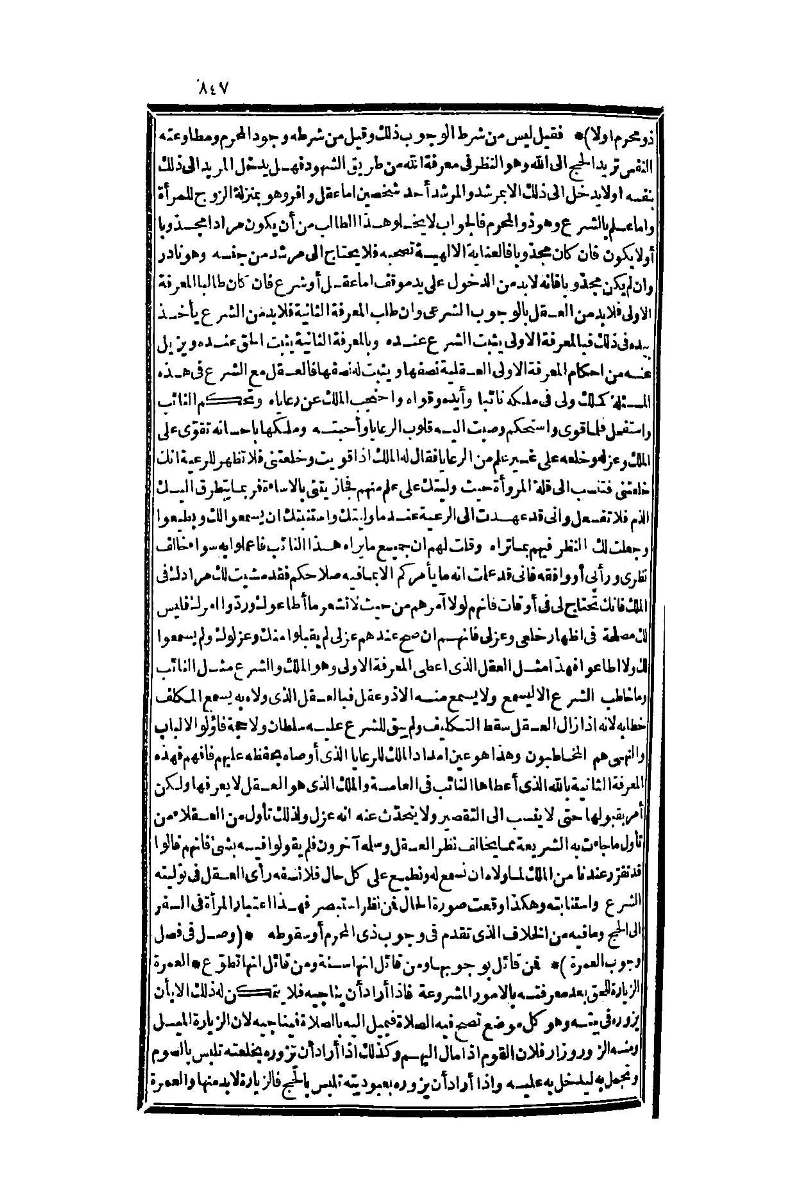 ٨٤٧
ذو محرم اولا)* فقيل ليس من شرط الوجوب ذلك وقيل من شرطه وجود المحرم ومطاوعته
النفس تريد الحج الى الله وهو النظر فى معرفة الله من طريق الشهود فهل يدخل المريد الى ذلك
بنفسه اولا يدخل الى ذلك الا بمرشد والمرشد أحد شخصين اما عقل وافر وهو بمنزلة الزوج للمرأة
واما علم بالشرع وهو ذو المحرم فالجواب لا يخلو هذا الطالب من أن يكون مرادا مجذوبا
أولا يكون فان كان مجذوبا فالعناية الالهية تصحبه فلا يحتاج الى مرشد من جنسه وهو نادر
وان لم يكن مجذوبا فانه لابد من الدخول على يد موقف اما عقل أو شرع فان كان طالبا المعرفة
الاولى فلابد من العقل بالوجوب الشرعى وان طلب المعرفة الثانية فلابد من الشرع يأخذ
بيده فى ذلك فبالمعرفة الاولى يثبت الشرع عنده وبالمعرفة الثانية يثبت الحق عنده ويزيل
عنه من احكام المعرفة الاولى العقلية نصفها ويثبت له نصفها فالعقل مع الشرع فى هذه
المسئلة كملك ولى فى ملكه نائبا وأيده وقواه واحتجب الملك عن رعاياه وتحكم النائب
واستفحل فلما قوى واستحكم وصبت اليه قلوب الرعايا وأحبته وملكها باحسانه تقوّى على
الملك وعزله وخلعه على غير علم من الرعايا فقال له الملك اذا قويت وخلعتنى فلا تظهر للرعية انك
خلعتنى فتناسب الى قلة المروأة حيث وليتك على علم منهم فجازيتنى بالاساءة فربما يتطرق اليك
الذم فلا تفعل وانى قد عهدت الى الرعية عند ما وليتك واستنبتك ان يسمعوا لك ويطيعوا
وجعلت لك النظر فيهم بما تراه وقلت لهم ان جميع ما يراه هذا النائب فاعملوا به سواء خالف
نظرى ورأيى أو وافقه فانى قد علمت انه ما يأمركم الا بما فيه صلاحكم فقد مشيت لك مرادك فى
الملك فانك تحتاج لى فى أوقات فانهم لولا آمرهم من حيث لا تشعر ما أطاعوك وردوا امرك فليس
لك مصلحة فى اظهار خلعى وعزلى فانهم ان صح عندهم عزلى لم يقبلوا منك وعزلوك ولم يسمعوا
لك ولا اطاعوا فهذا مثل العقل الذى اعطى المعرفة الاولى وهو الملك والشرع مثل النائب
وما خاطب الشرع الا ليسمع ولا يسمع منه الا ذو عقل فبالعقل الذى ولاه به يسمع المكلف
خطابه لانه اذا زال العقل سقط التكليف ولم يبق للشرع عليه سلطان ولا حجة فاولو الالباب
والنهى هم المخاطبون وهذا هو عين امداد الملك للرعايا الذى أوصاه بحفظه عليهم فافهم فهذه
المعرفة الثانية بالله الذى أعطاها النائب فى العامة والملك الذى هو العقل لا يعرفها ولكن
أمر بقبولها حتى لا ينسب الى التقصير ولا يتحدّث عنه انه عزل ولذلك تأول من العقلاء من
تأول ما جاءت به الشريعة مما يخالف نظر العقل وسلمه آخرون فلم يقولوا فيه بشئ فانهم قالوا
قد تقرر عندنا من الملك لما ولاه ان نسمع له ونطيع على كل حال فلا نسفه رأى العقل فى توليته
الشرع واستنابته وهكذا وقعت صورة الحال لمن نظر استبصر فهذا اعتبار المرأة فى السفر
الى الحج وما فيه من الخلاف الذى تقدم فى وجوب ذى المحرم أو سقوطه *(وصل فى فصل
وجوب العمرة)* فمن قائل بوجوبها ومن قائل انها سنة ومن قائل انها تطوّع* العمرة
الزيارة للحق بعد معرفته بالامور المشروعة فاذا أراد أن يناجيه فلا يتمكن له ذلك الا بأن
يزوره فى بيته وهو كل موضع تصح فيه الصلاة فيميل اليه بالصلاة فيناجيه لان الزيارة الميل
ومنه الزور وزار فلان القوم اذا مال اليهم وكذلك اذا أراد أن تزوره بخلعته تلبس بالصوم
وتجمل به ليدخل به عليه واذا أراد أن يزوره بعبوديته تلبس بالحج فالزيارة لابد منها والعمرة